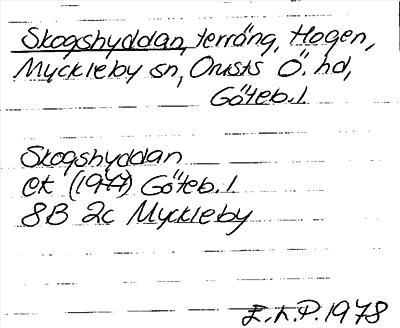 Skogshyddan, terräng, Hogen,
Myckleby sn, Orusts Ö. hd,
Göteb. l.
Skogshyddan
ek (1977) Göteb. l
8B 2c Myckleby
L.P. 1978